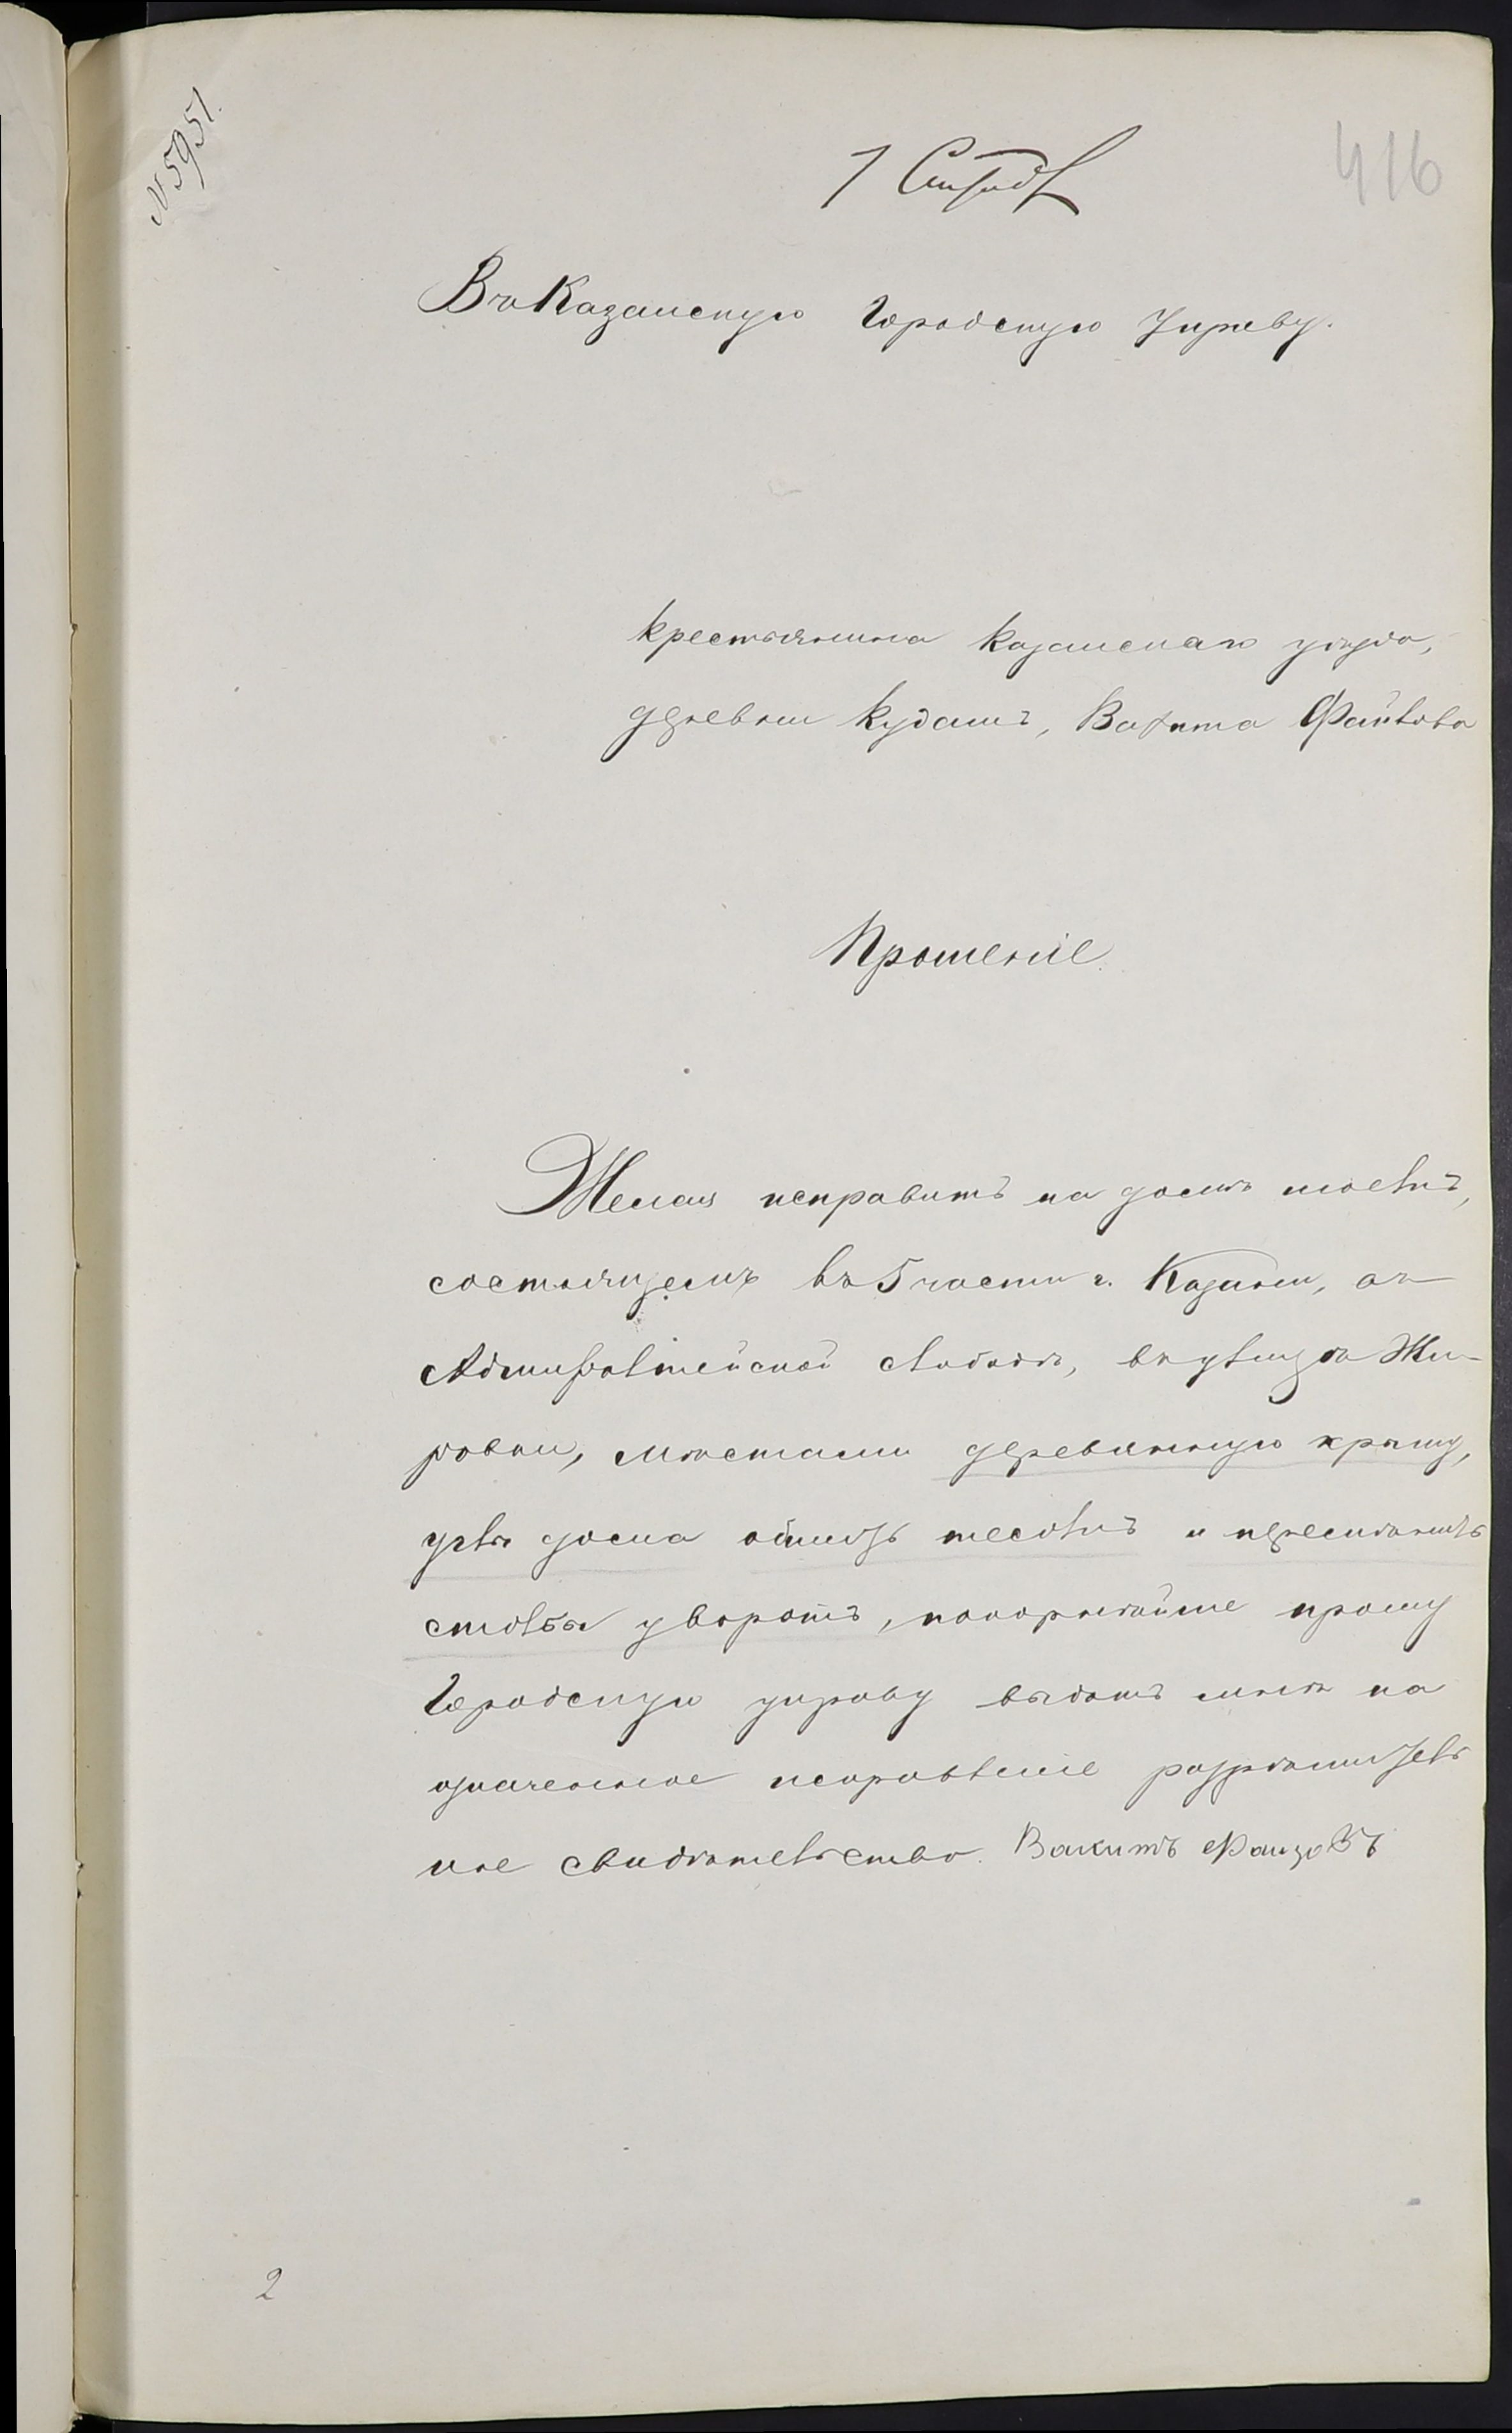 № 5951.
416
Въ Казанскую Городскую Управу.
крестьянина Казанскаго уѣзда,
деревни Кудашъ, Вахита
Прошеніе.
Желая исправить на домѣ моемъ,
состоящемъ въ 5 части г. Казани, въ
Адмиралтейской слободѣ, въ улицѣ Жи-
ровки, мѣстами деревянную крышу,
углы дома обшить тесомъ и перемѣнить
столбы у воротъ, покорнѣйше прошу
Городскую управу выдать мнѣ на
означенное исправленіе разрѣшитель
ное свидѣтельство. Вахитъ Фаизовъ
2